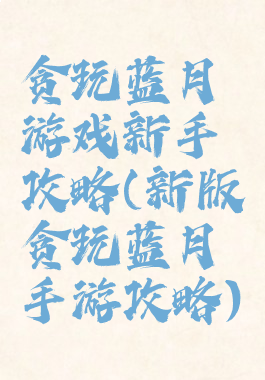 贪玩蓝月
游戏新手
攻略(新版
贪玩蓝月
手游攻略)